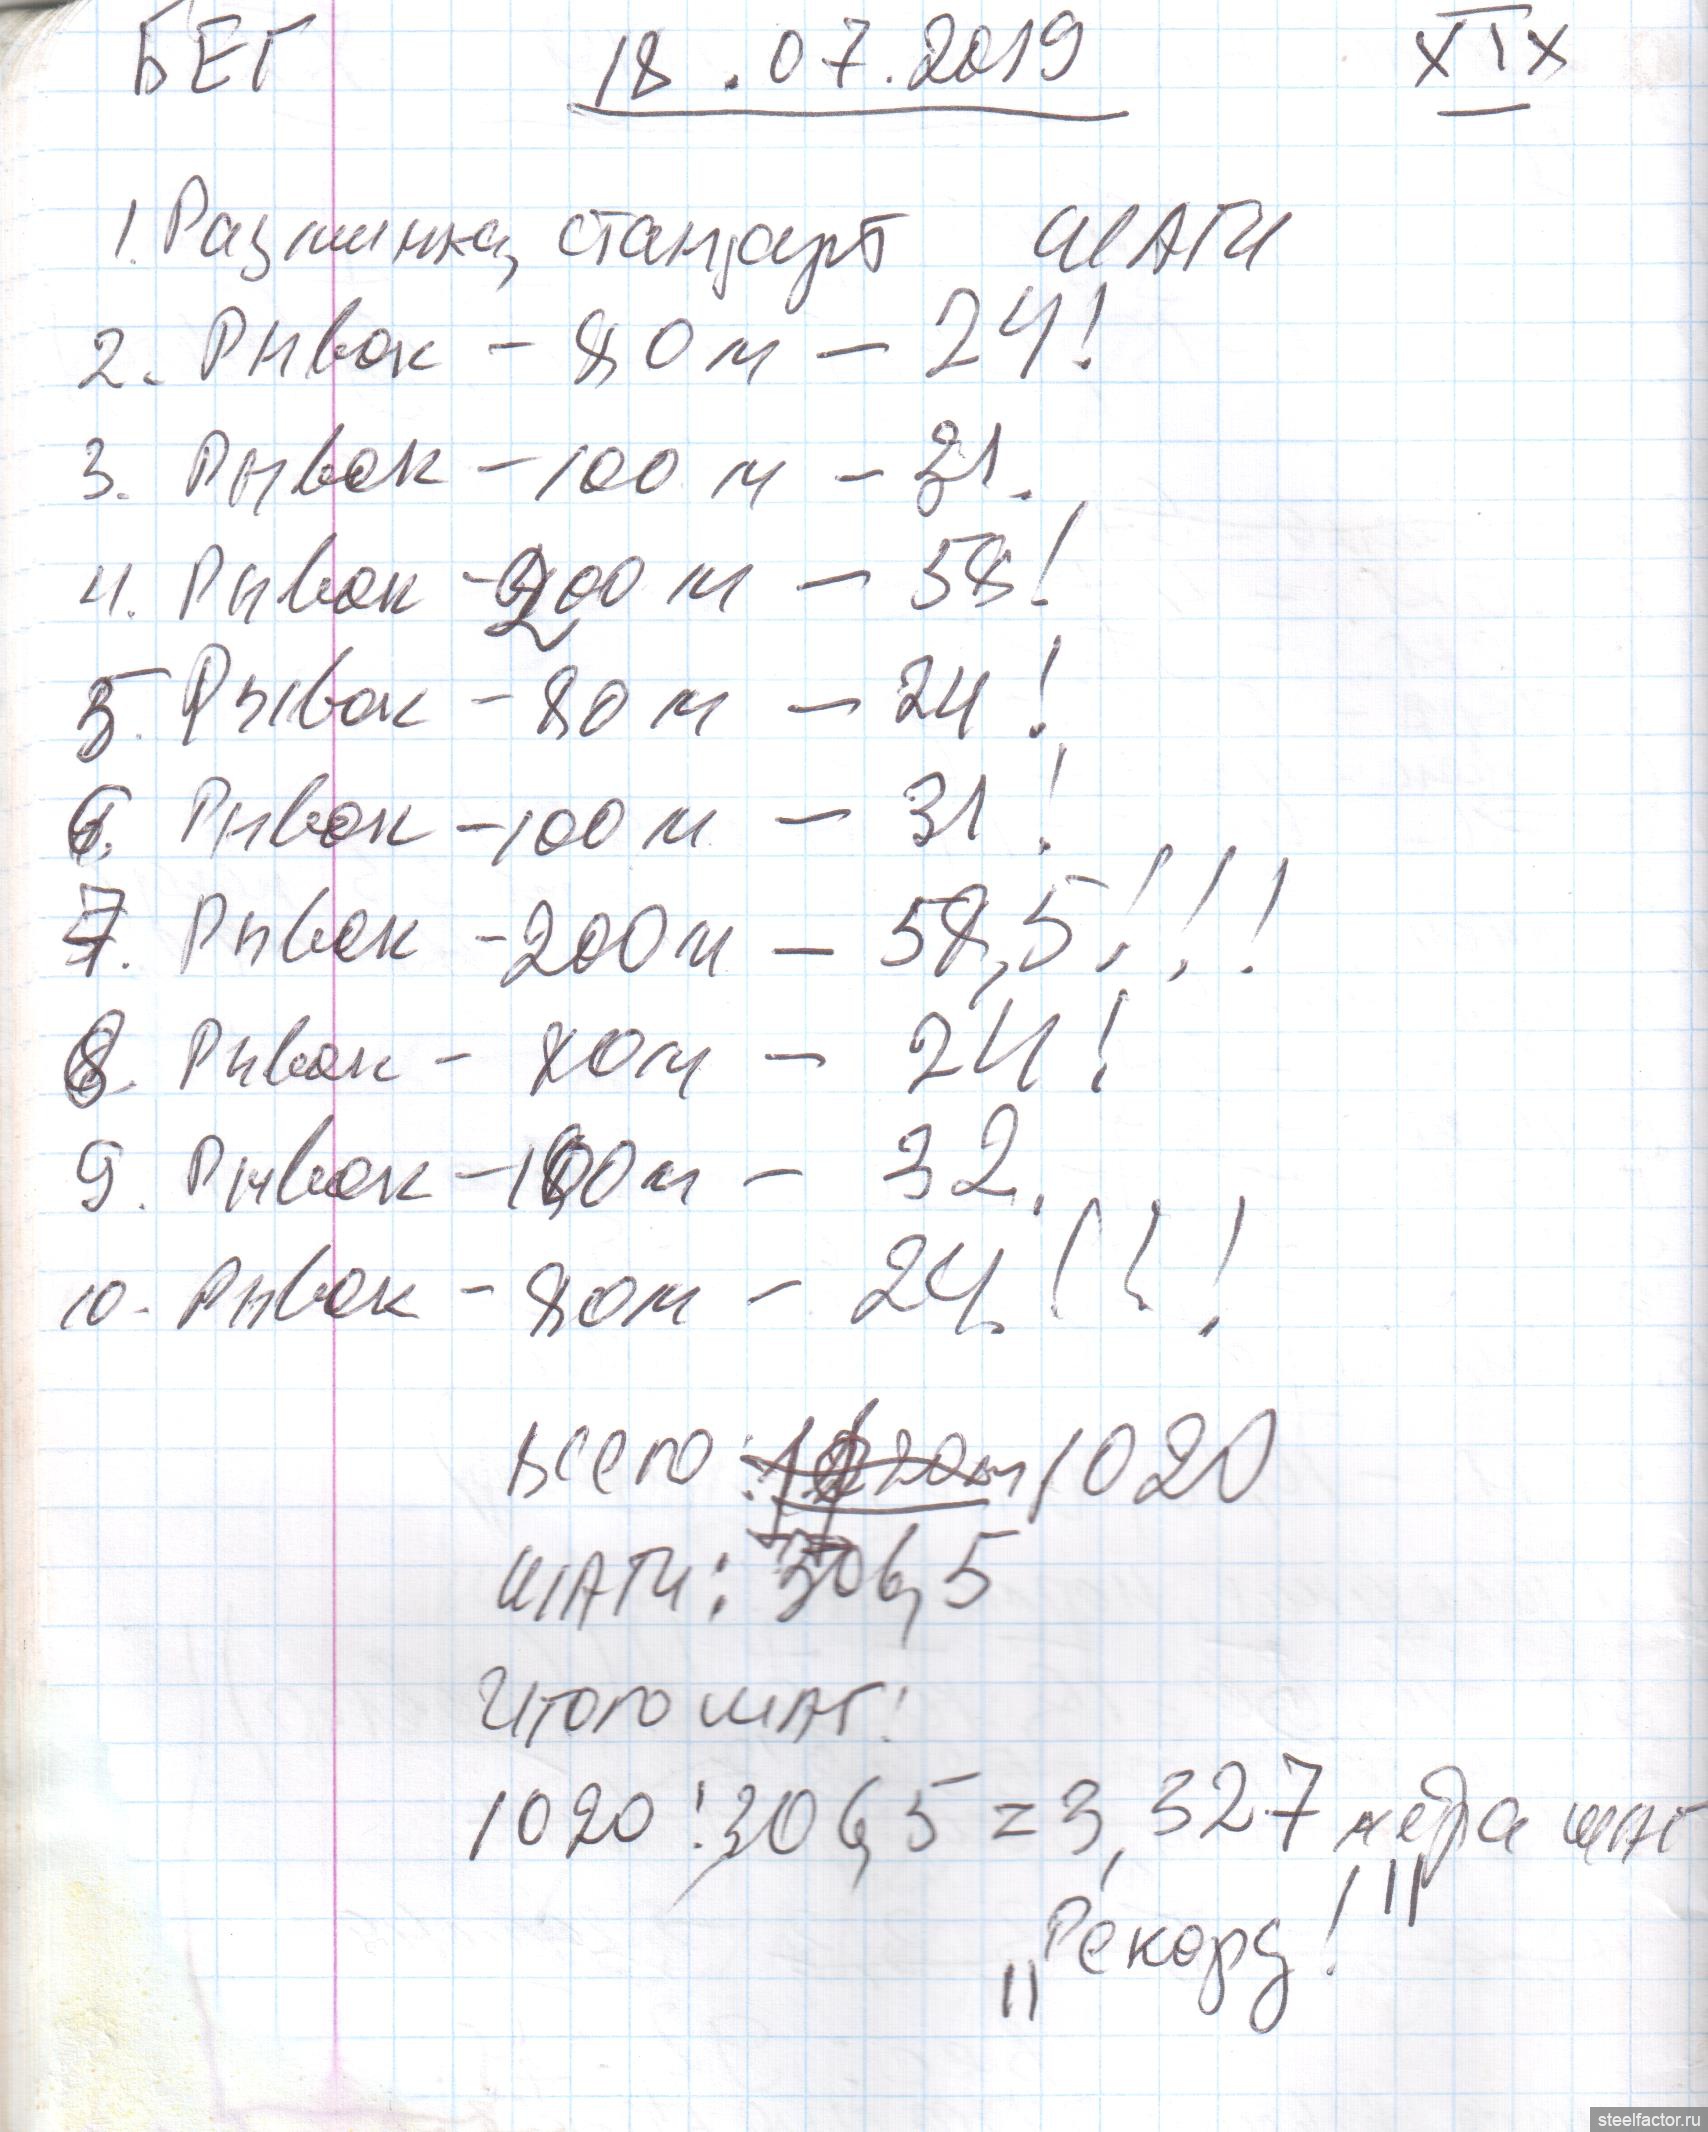 БЕГ 18.07.2019 XIX
1. Разминка, стандарт ШАГИ
2. Рывок - 80 м - 24!
3. Рывок - 100 м - 31.
4. Рывок - 200 м - 58!
5. Рывок - 80 м - 24!
6. Рывок - 100 м - 31!
7. Рывок - 200 м - 58,5!!!
8. Рывок - 80 м - 24!
9. Рывок - 100 м - 32.
10. Рывок - 80 м - 24!!!
Всего: 1020
ШАГИ: 306,5
Итого ШАГ:
1020 : 306,5 = 3,327 метра ШАГ
„Рекорд!"
steelfactor.ru